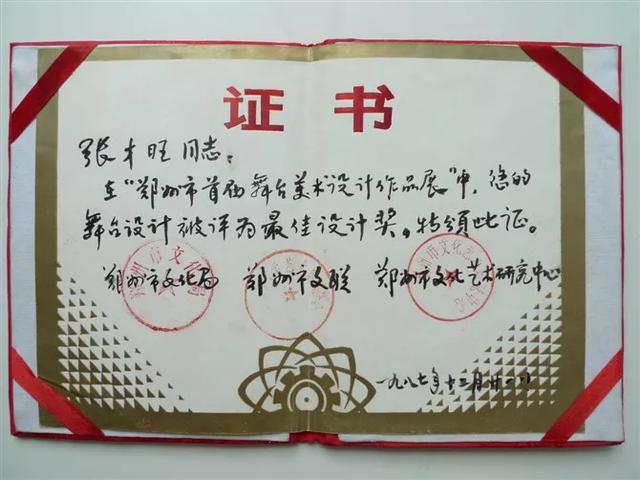 证书
张才旺同志：
在"郑州市首届舞台美术设计作品展"中，您的
舞台设计被评为最佳设计奖。特颁此证。
郑州市文化局 郑州市文联 郑州市文化艺术研究中心
一九八七年十二月廿一日